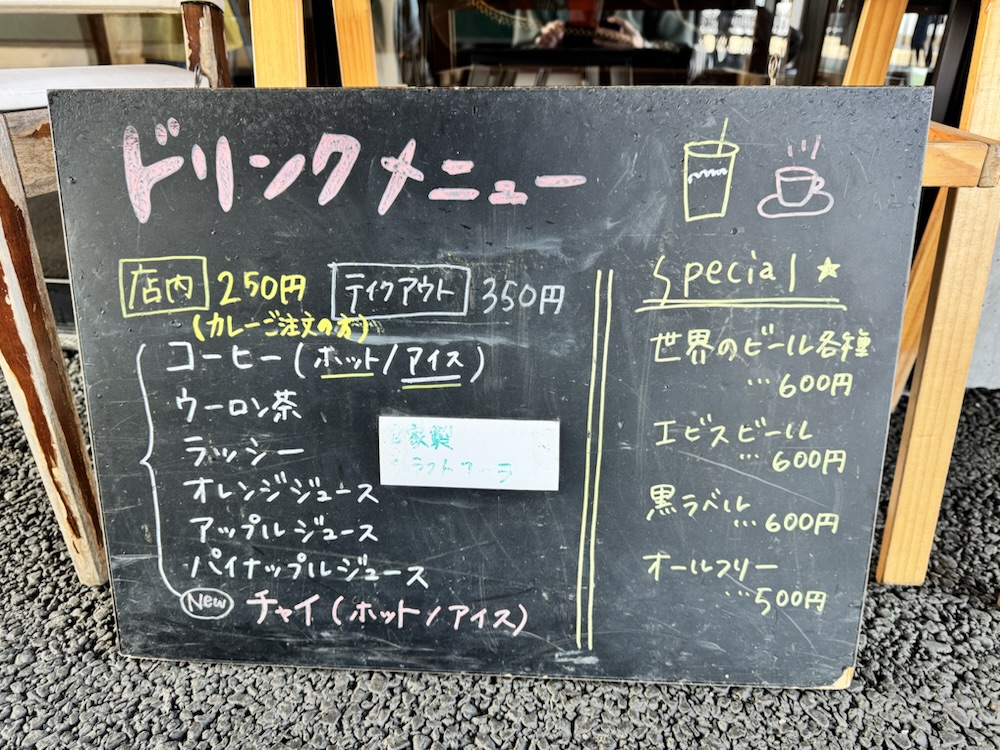 ドリンクメニュー
店内 250円 テイクアウト 350円
(カレーご注文の方)
コーヒー(ホット/アイス)
ウーロン茶
ラッシー
オレンジジュース
アップルジュース
パイナップルジュース
New チャイ(ホット/アイス)
家製
Special ★
世界のビール各種
…600円
エビスビール
…600円
黒ラベル
…600円
オールフリー
…500円